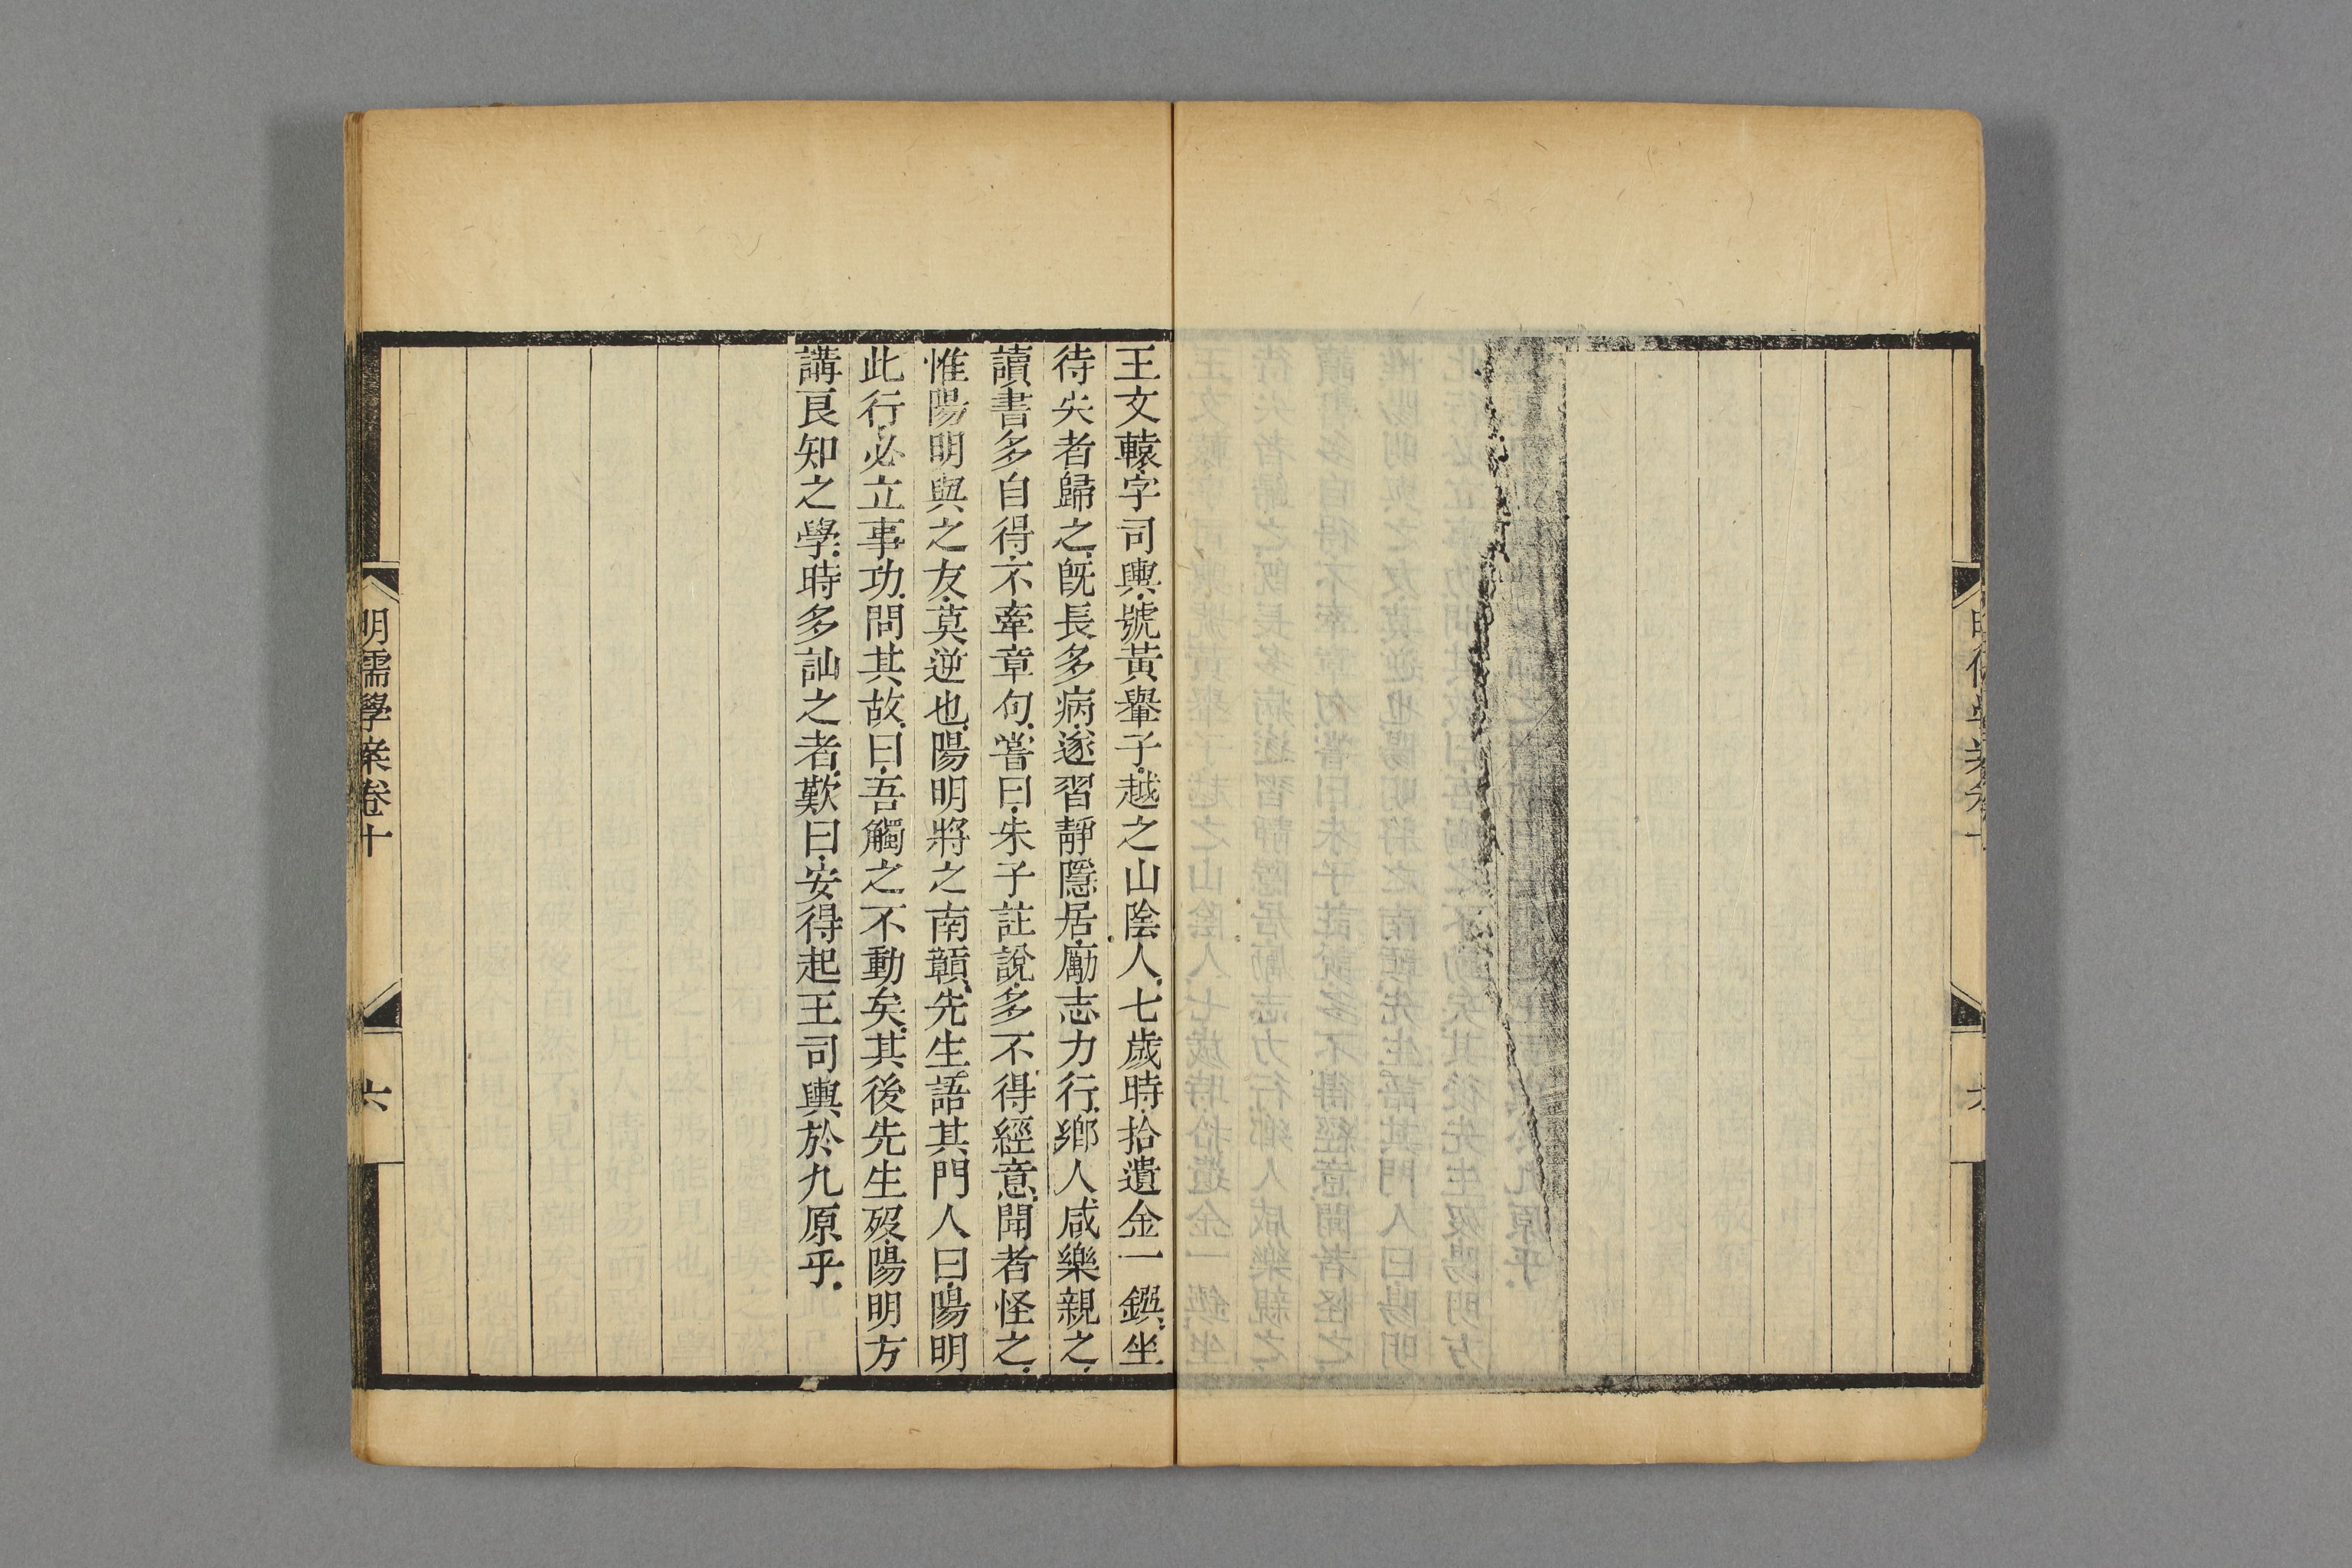 王文轅字司輿號黃轝子越之山陰人七歲時拾遺金一鐉坐
待失者歸之旣長多病遂習靜隱居勵志力行鄉人咸樂親之
讀書多自得不牽章句嘗曰朱子註說多不得經意聞者怪之
惟陽明與之友莫逆也陽明將之南贑先生語其門人曰陽明
此行必立事功問其故曰吾觸之不動矣其後先生歿陽明方
講良知之學時多訕之者歎曰安得起王司輿於九原乎
明儒學案卷十
六